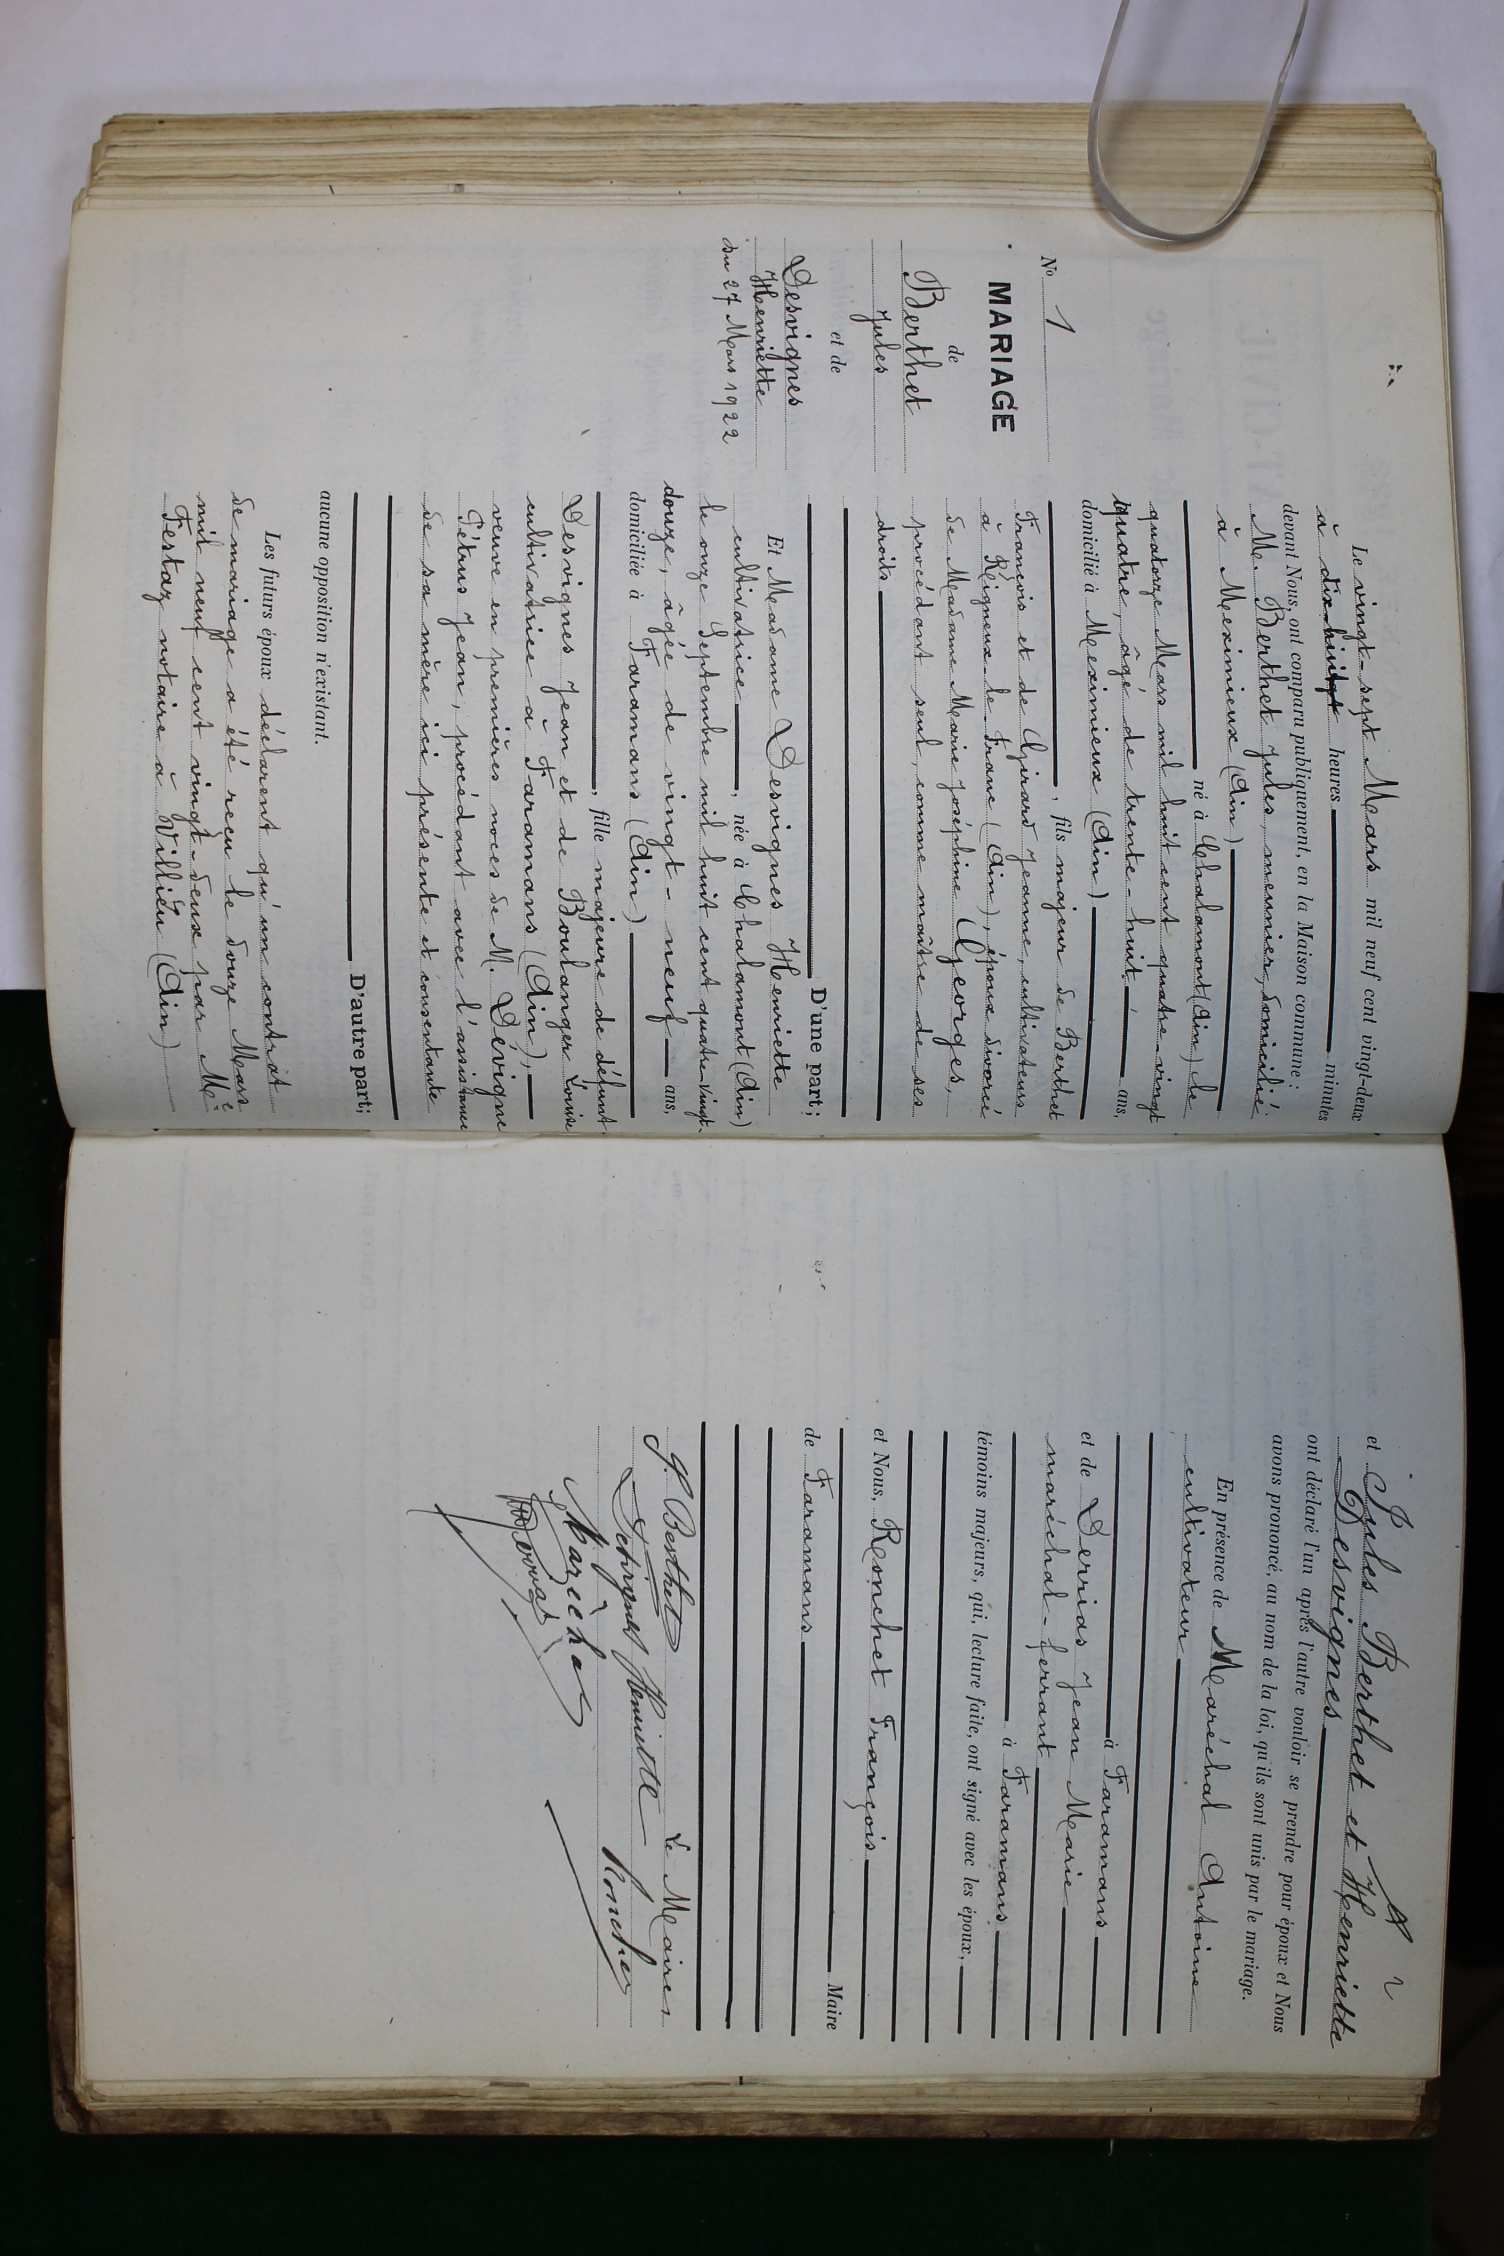 No 1
MARIAGE
de
Berthet
Jules
et de
Desvignes
Henriette
du 27 Mars 1922
Le vingt-sept Mars mil neuf cent vingt-deux
à dix-huit heures minutes
devant Nous, ont comparu publiquement, en la Maison commune :
M. Berthet Jules, meunier, domicilié
à Meximieux (Ain)
né à Chalamont (Ain) le
quatorze Mars mil huit cent quatre-vingt
quatre, âgé de trente-huit, ans,
domicilié à Meximieux (Ain)
, fils majeur de Berthet
François et de Girard Jeanne, cultivateurs
à Rigneux-le-Franc (Ain), époux divorcé
de Madame Marie Joséphine Georges,
procédant seul, comme maître de ses
droits
D'une part;
Et Madame Desvignes Henriette
cultivatrice, née à Chalamont (Ain)
le onze Septembre mil huit cent quatre-vingt-
douze, âgée de vingt-neuf ans,
domiciliée à Faramans (Ain)
, fille majeure de défunt
Desvignes Jean et de Boulanger Louise
cultivatrice à Faramans (Ain),
veuve en premières noces de M. Dévigne
Pétrus Jean, procédant avec l'assistance
de sa mère ici présente et consentante
D'autre part;
aucune opposition n'existant.
Les futurs époux déclarent qu'un contrat
de mariage a été reçu le douze Mars
mil neuf cent vingt-deux par Me
Festaz notaire à Villieu (Ain)
2
et Jules Berthet et Henriette
Desvignes
ont déclaré l'un après l'autre vouloir se prendre pour époux et Nous
avons prononcé, au nom de la loi, qu'ils sont unis par le mariage.
En présence de Maréchal Antoine
cultivateur
à Faramans
et de Derrias Jean Marie
maréchal-ferrant
à Faramans
témoins majeurs, qui, lecture faite, ont signé avec les époux,
et Nous, Ronchet François
Maire
de Faramans
Le Maire
J. Berthet
Desvignes Henriette
Maréchal
Ronchet